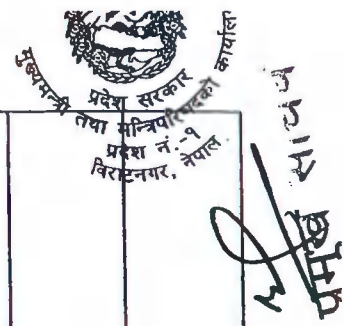 प्रदेश सरकार
मुख्यमन्त्री तथा मन्त्रिपरिषदको कार्यालय
प्रदेश नं.-१
विराटनगर, नेपाल
प्रमुख सचिव